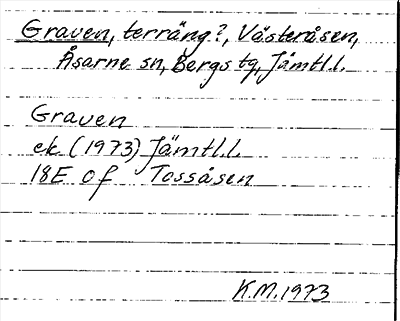 Graven, terräng?, Västeråsen,
Åsarne sn, Bergs tg, Jämtl.l.
Graven
ek. (1973) Jämtl.l.
18E 0f Tossåsen
K.M. 1973